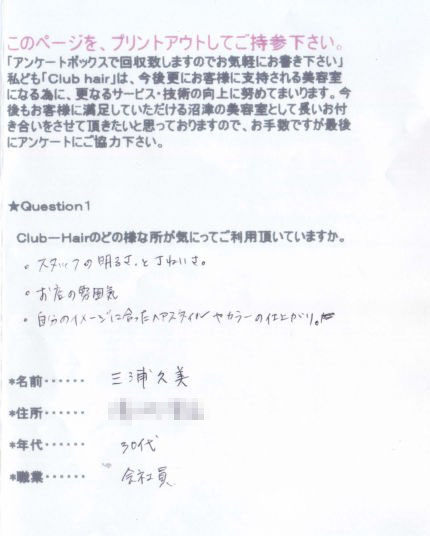 このページを、プリントアウトしてご持参下さい。
「アンケートボックスで回収致しますのでお気軽にお書き下さい」
私ども「Club hair」は、今後更にお客様に支持される美容室
になる為に、更なるサービス・技術の向上に努めてまいります。今
後もお客様に満足していただける沼津の美容室として長いお付
き合いをさせて頂きたいと思っておりますので、お手数ですが最後
にアンケートにご協力下さい。
★Question1
Club－Hairのどの様な所が気にってご利用頂いていますか。
・スタッフの明るさ、ときれいさ。
・お店の雰囲気
・自分のイメージに合ったヘアスタイルやカラーの仕上がり。
*名前‥‥‥ 三浦久美
*住所‥‥‥
*年代‥‥‥ 30代
*職業‥‥‥ 会社員